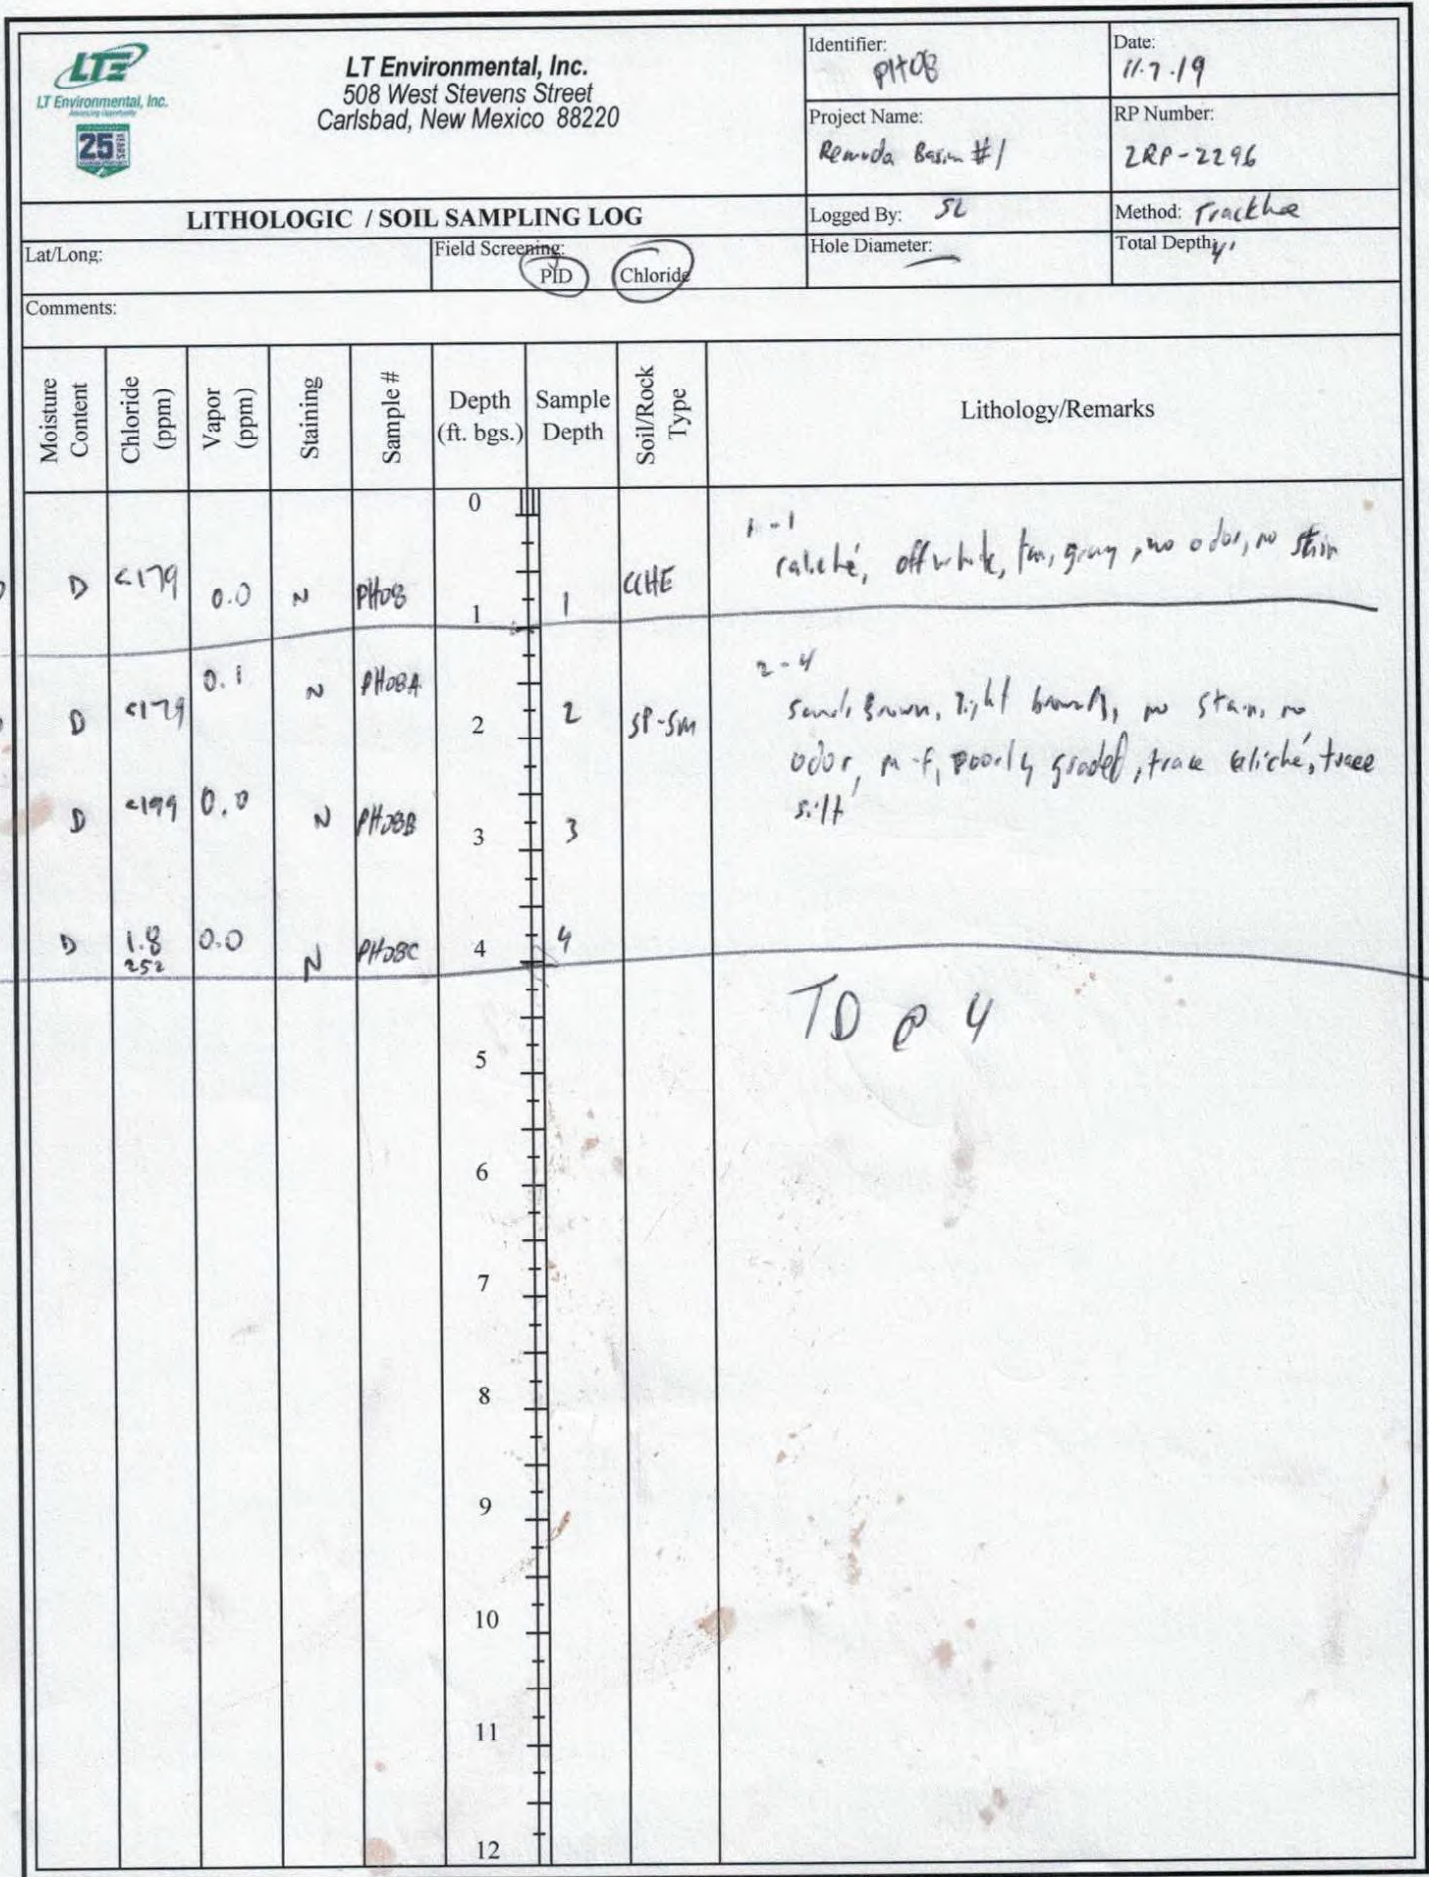 LTE
LT Environmental, Inc.
Advancing Opportunity
25 YEARS
LT Environmental, Inc.
508 West Stevens Street
Carlsbad, New Mexico 88220
Identifier: PH08
Date: 11.7.19
Project Name: Remuda Basin #1
RP Number: 2RP-2296
LITHOLOGIC / SOIL SAMPLING LOG
Logged By: SL
Method: Trackhoe
Lat/Long:
Field Screening: PID Chloride
Hole Diameter: —
Total Depth: 4'
Comments:
Moisture Content
Chloride (ppm)
Vapor (ppm)
Staining
Sample #
Depth (ft. bgs.)
Sample Depth
Soil/Rock Type
Lithology/Remarks
0
D <179 0.0 N PH08 1 1 CCHE
caliché, off white, tan, gray, no odor, no stain
D <179 0.1 N PH08A 2 2 SP-SM
2-4
sand, Brown, light brown, no stain, no
odor, m-f, poorly graded, trace caliché, trace
silt
D <199 0.0 N PH08B 3 3
D 1.8 252 0.0 N PH08C 4 4
TD @ 4
5
6
7
8
9
10
11
12